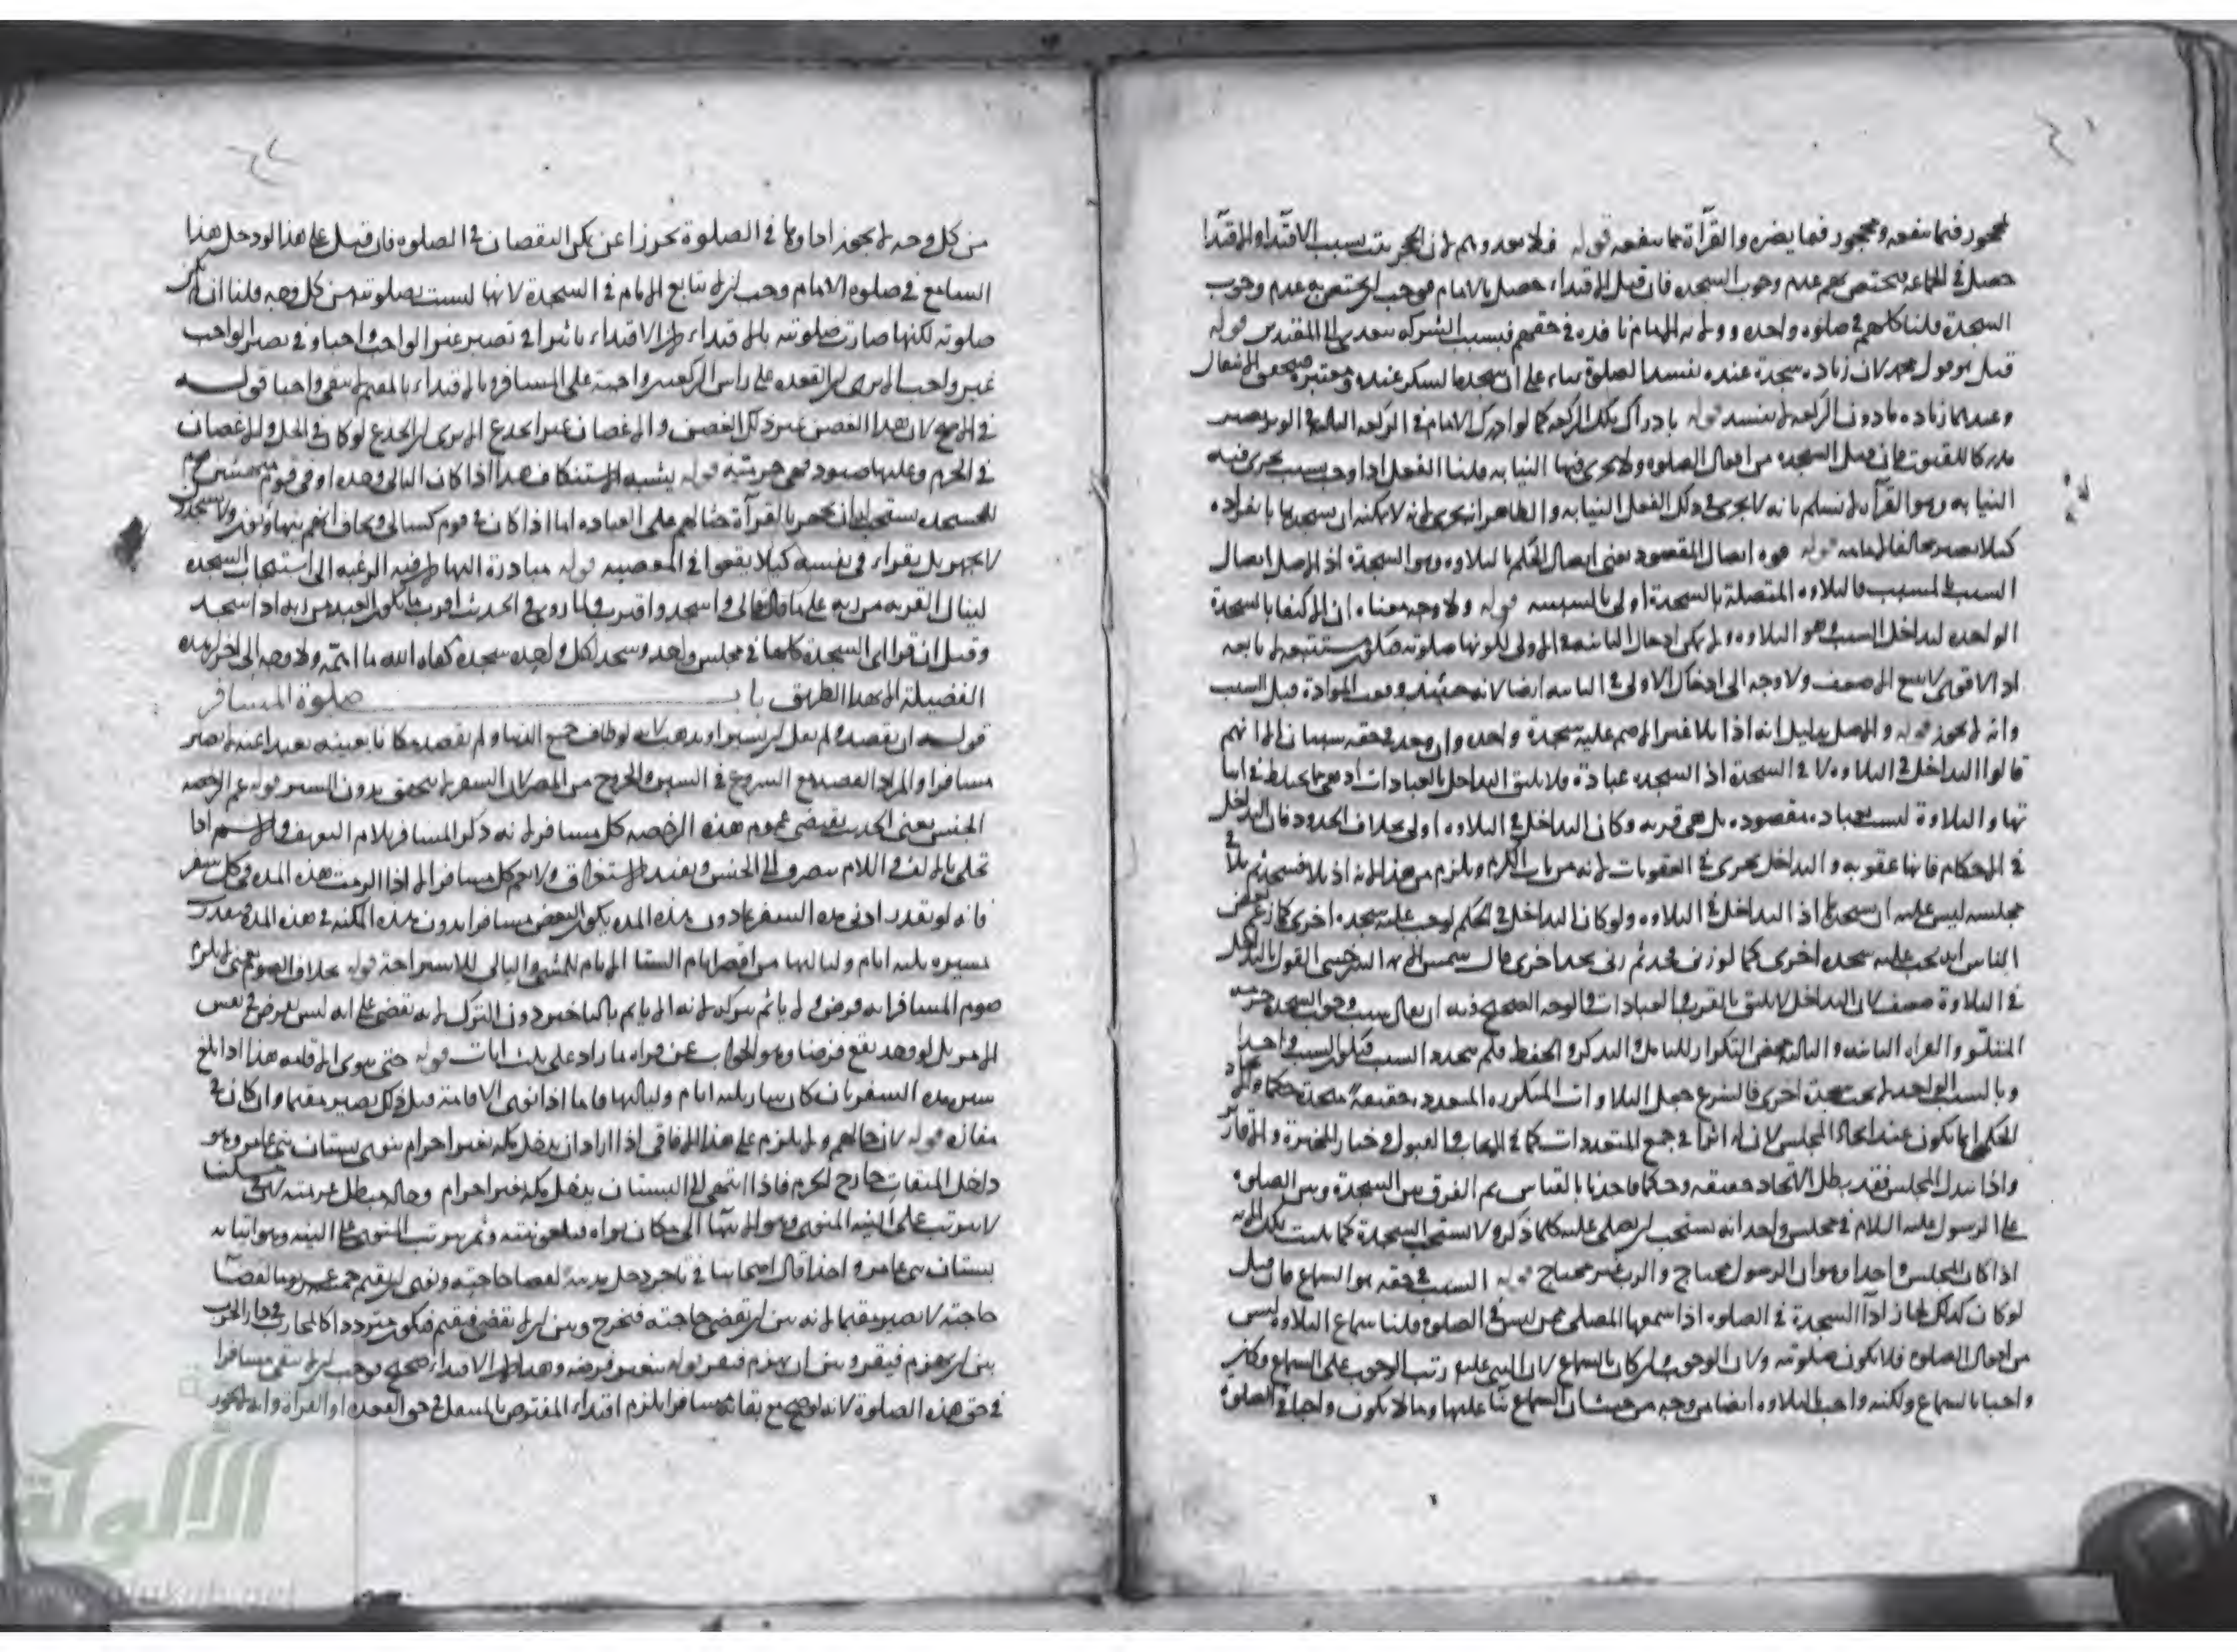 محجور فيما ينفعه ومحجور فيما يضره والقرآة مما ينفعه قوله فلا يعدوهم لان الحجر يثبت بسبب الاقتدا والاقتدا
حصل في الجماعة فيختص بهم عدم وجوب السجده فان قيل الاقتداء حصل بالامام فوجب ان يختص به عدم وجوب
السجدة قلنا كلهم في صلوه واحده وولاية الامام نافذه في حقهم فبسبب الشركه يتعدى الى المقتدين قوله
قيل هو قول محمد لان زياده سجدة عنده تفسد الصلوة بناء على ان سجدة الشكر عنده معتبرة
وعندهما زياده ما دون الركعه لا يفسد قوله بادراك تلك الركعه كما لو ادرك الامام في الركعه الثالثه في الوتر يصير
مدركا للقنوت فان قيل السجده من افعال الصلوه ولا يجرى فيها النيابه قلنا الفعل اذا وجب بسبب يجرى فيه
النيابه وهو القرآة لا نسلم بانه لا يجرى في ذلك الفعل النيابه والظاهر انه يجرى لانه لا يمكنه ان يسجدها بانفراده
كيلا يصير مخالفا لامامه قوله قوه اتصال المقصود يعنى اتصال الحكم بالتلاوه وهو السجدة اذ الاصل اتصال
السبب بالمسبب فالتلاوه المتصلة بالسجدة اولى بالسببيه قوله ولا وجه معناه ان الاكتفا بالسجدة
الواحده لتداخل السبب وهو التلاوه ولا يمكن ادخال الثانيه في الاولى لكونها صلوتيه مستتبعه لا تابعه
اذ الاقوى لا يتبع الاضعف ولا وجه الى ادخال الاولى في الثانيه ايضا لانه حينئذ وقوع الموادة قبل السبب
وانه لا يجوز قوله والاصل بدليل انه اذا تلا غير الاصم عليه سجدة واحده وان وجد في حقه سببان الا انهم
قالوا التداخل في التلاوه لا في السجدة اذ السجده عبادة فلا يليق التداخل بالعبادات اذ هي مما يحتاط في اثبا
تها والتلاوة ليست بعباده مقصوده بل هي قربه وكان التداخل في التلاوه اولى بخلاف الحدود فان التداخل
في الاحكام فانها عقوبه والتداخل يجرى في العقوبات لانه من باب الكرم ويلزم من هذا انه اذا تلا فسجد ثم تلا في
مجلسه ليس عليه ان يسجد اذ التداخل في التلاوه ولو كان التداخل في الحكم لوجب عليه سجده اخرى كما زعم بعض
الناس انه يجب عليه سجده اخرى كما لو زنى فحد ثم زنى يحد اخرى قال شمس الائمه السرخسى القول بالتداخل
في التلاوة ضعيف لان التداخل لا يليق بالقرب والعبادات والوجه الصحيح فيه ان يقال سبب وجوب السجده حرمه
المتلو والقراه الثانيه والثالثه بعض التكرار للتامل والتدكر والحفظ فلم يتجدد السبب فيكون السبب واحدا
وبالسبب الواحد لا يجب سجدة اخرى فالشرع جعل التلاوات المتكرره المتعدده حقيقة متحدة حكما والاتحاد
الحكمى انما يكون عند اتحاد المجلس لان له اثرا في جمع المتعددات كما في الايجاب والقبول وفي خيار المخيرة والاقارير
واذا تبدل المجلس فقد بطل الاتحاد حقيقه وحكما فاخذنا بالقياس ثم الفرق بين السجدة وبين الصلوه
على الرسول عليه السلام في مجلس واحد انه يستحب ان يصلى عليه كلما ذكر ولا يستحب السجدة كلما تليت تلك الايه
اذا كان المجلس واحدا وهو ان الرسول محتاج والرب غير محتاج قوله السبب في حقه هو السماع فان قيل
لو كان كذلك لجاز ادآ السجدة في الصلوه اذا سمعها المصلى ممن ليس في الصلوه قلنا سماع التلاوه ليس
من افعال الصلوه فلا يكون صلوتيه ولان الوجوب وان كان بالسماع لان النبى عليه رتب الوجوب على السماع فكان
واجبا بالسماع ولكنه واجب بالتلاوه ايضا من وجه من حيث ان السماع بنآ عليها وما لا يكون واجبا في الصلوة
من كل وجه لا يجوز اداوها في الصلوة تحرزا عن تمكن النقصان في الصلوه فان قيل على هذا لو دخل هذا
السامع في صلوه الامام وجب ان لا يتابع الامام في السجدة لانها ليست بصلوتيه من كل وجه قلنا ان لم تكن
صلوتيه لكنها صارت صلوتيه بالاقتداء لان الاقتداء تاثيرا في تصيير غير الواجب واجبا وفي تصيير الواجب
غير واجب الا يرى ان القعده على راس الركعتين واجبة على المسافر وبالاقتداء بالمقيم لا يبقى واجبا قوله
في الاصح لان هذا الغصن غير ذلك الغصن والاغصان غير الجذع الا يرى ان الجذع لو كان في الحل والاغصان
في الحرم وعليها صيود فهى حرمية قوله يشبه الاستنكاف هذا اذا كان التالى وحده او في قوم
للسجده يستحب ان يجهر بالقرآة حثا لهم على العباده اما اذا كان في قوم كسالى ويخاف انهم يتهاونون ولا يسجدون
لا يجهر بل يقراء في نفسه كيلا يقعوا في المعصيه قوله مبادرة اليها لان فيه الرغبه الى استيجاب السجده
لينال القربه من ربه على ما قال تعالى واسجد واقترب ولما روى في الحديث اقرب ما يكون العبد من ربه اذا سجد
وقيل ان قرا اى السجدة كلها في مجلس واحد وسجد لكل واحده سجده كفاه الله ما اهمه ولا وجه الى احراز هذه
الفضيلة الا بهذا الطريق باب صلوة المسافر
قوله ان يقصد ولم يقل ان يسير او يذهب لانه لو طاف جميع الدنيا ولم يقصد مكانا بعينه بعيدا عنه لا يصير
مسافرا والمراد القصد مع الشروع في السير والخروج من المصر لان السفر لا يتحقق بدون السير قوله عم الرخصه
الجنس يعنى الحديث يقتضى عموم هذه الرخصه كل مسافر لانه ذكر المسافر بلام التعريف والاسم اذا
تحلى بالالف واللام ينصرف الى الجنس ويفيد الاستغراق ولا يعم كل مسافر الا اذا اثبت هذه المده في كل سفر
فانه لو تقدر ادنى مده السفر بما دون هذه المده يكون البعض مسافرا بدون هذه المكنه في هذه المده فقدرت
بمسيره ثلثه ايام ولياليها من اقصر ايام السنة الايام للمشى والليالى للاستراحة قوله بخلاف الصوم يعنى لا يلزم
صوم المسافر انه فرض ولا ياثم بتركه لانه انما ياثم بالتاخير دون الترك لانه يقضى على انه ليس بفرض في نفس
الامر بل لو وجد يقع فرضا وهو الجواب عن قراه ما زاد على ثلث ايات قوله حتى ينوى الاقامه هذا اذا بلغ
سيره مده السفر بان كان سار ثلثه ايام ولياليها فاما اذا نوى الاقامة قبل ذلك يصير مقيما وان كان في
مفازه قوله لان حالهم ولا يلزم على هذا الافاقى اذا اراد ان يدخل مكه بغير احرام ينوى بستان بنى عامر وهو
داخل الميقات خارج الحرم فاذا انتهى الى البستان يدخل مكه بغير احرام وحاله مبطل عزيمته
لا يترتب على النيه المنوى وهو الانتها الى مكان نواه فيلغو نيته وثم يترتب المنوى على النيه وهو اتيانه
بستان بنى عامر واحدا قال اصحابنا في تاجر دخل مدينة لقضا حاجته ونوى ان يقيم خمسه عشر يوما لقضآ
حاجته لا يصير مقيما لانه بين ان يقضى حاجته فيخرج وبين ان لا يقضى فيقيم فيكون مترددا كالمحارب في دار الحرب
بين ان يهزم فيقر وبين ان يهزم فيفر قوله يتغير فرضه وهذا لان الاقتداء صحيح فوجب ان لا يبقى مسافرا
في حق هذه الصلوة لانه لو صح مع بقائه مسافرا يلزم اقتداء المفترض بالمتنفل في حق القعده او القرآة وانه لا يجوز
الألوكة